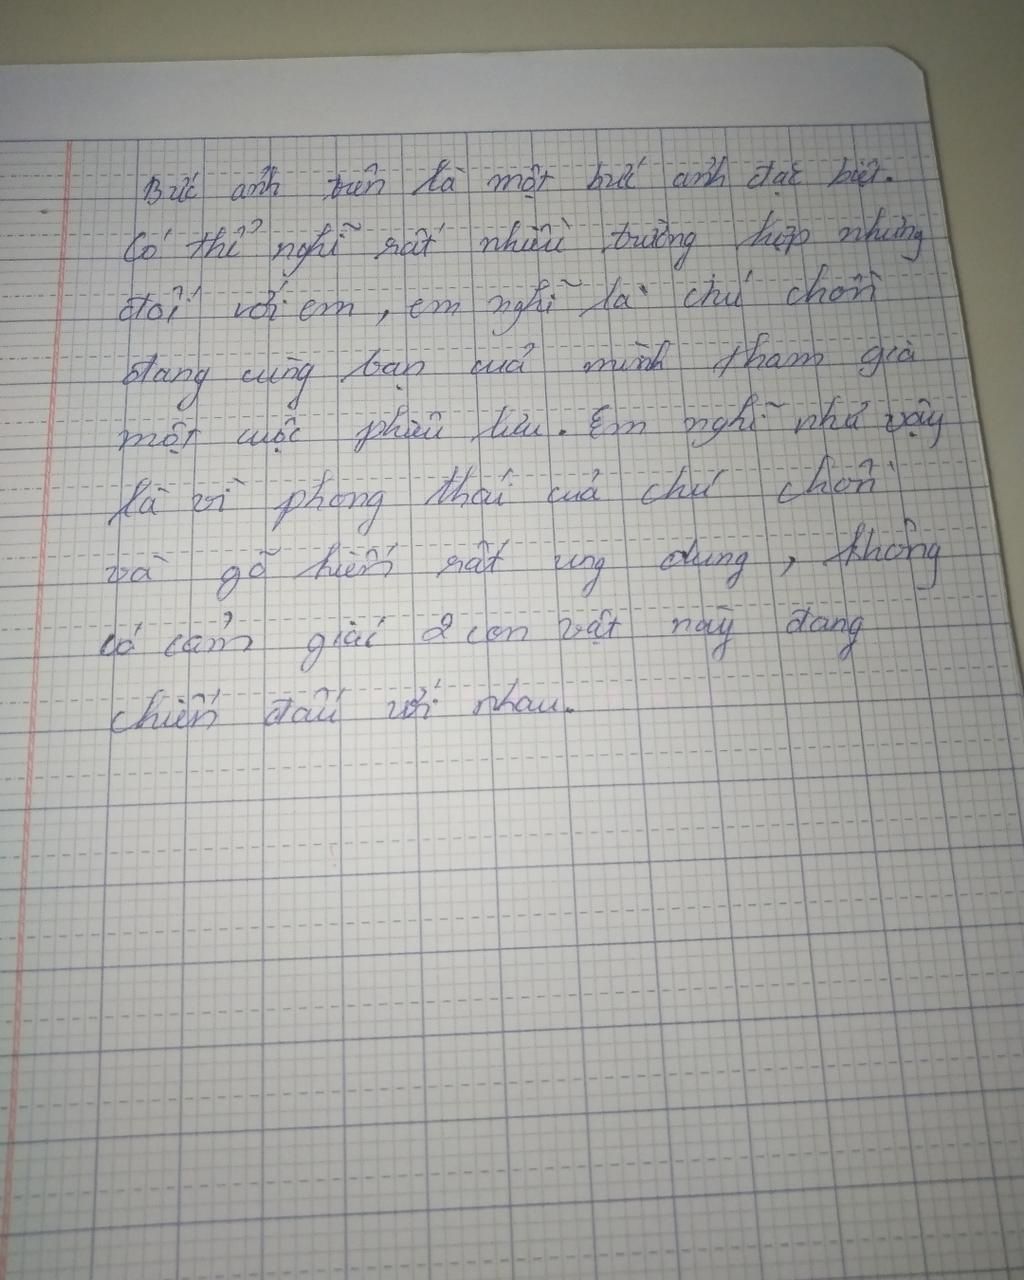 Bức ảnh trên là một bức ảnh đặc biệt.
Có thể nghĩ rất nhiều trường hợp nhưng
đối với em, em nghĩ là chú chồn
đang cùng bạn của mình tham gia
một cuộc phiêu lưu. Em nghĩ như vậy
là vì phong thái của chú chồn
và gõ kiến rất ung dung, không
có cảm giác 2 con vật này đang
chiến đấu với nhau.